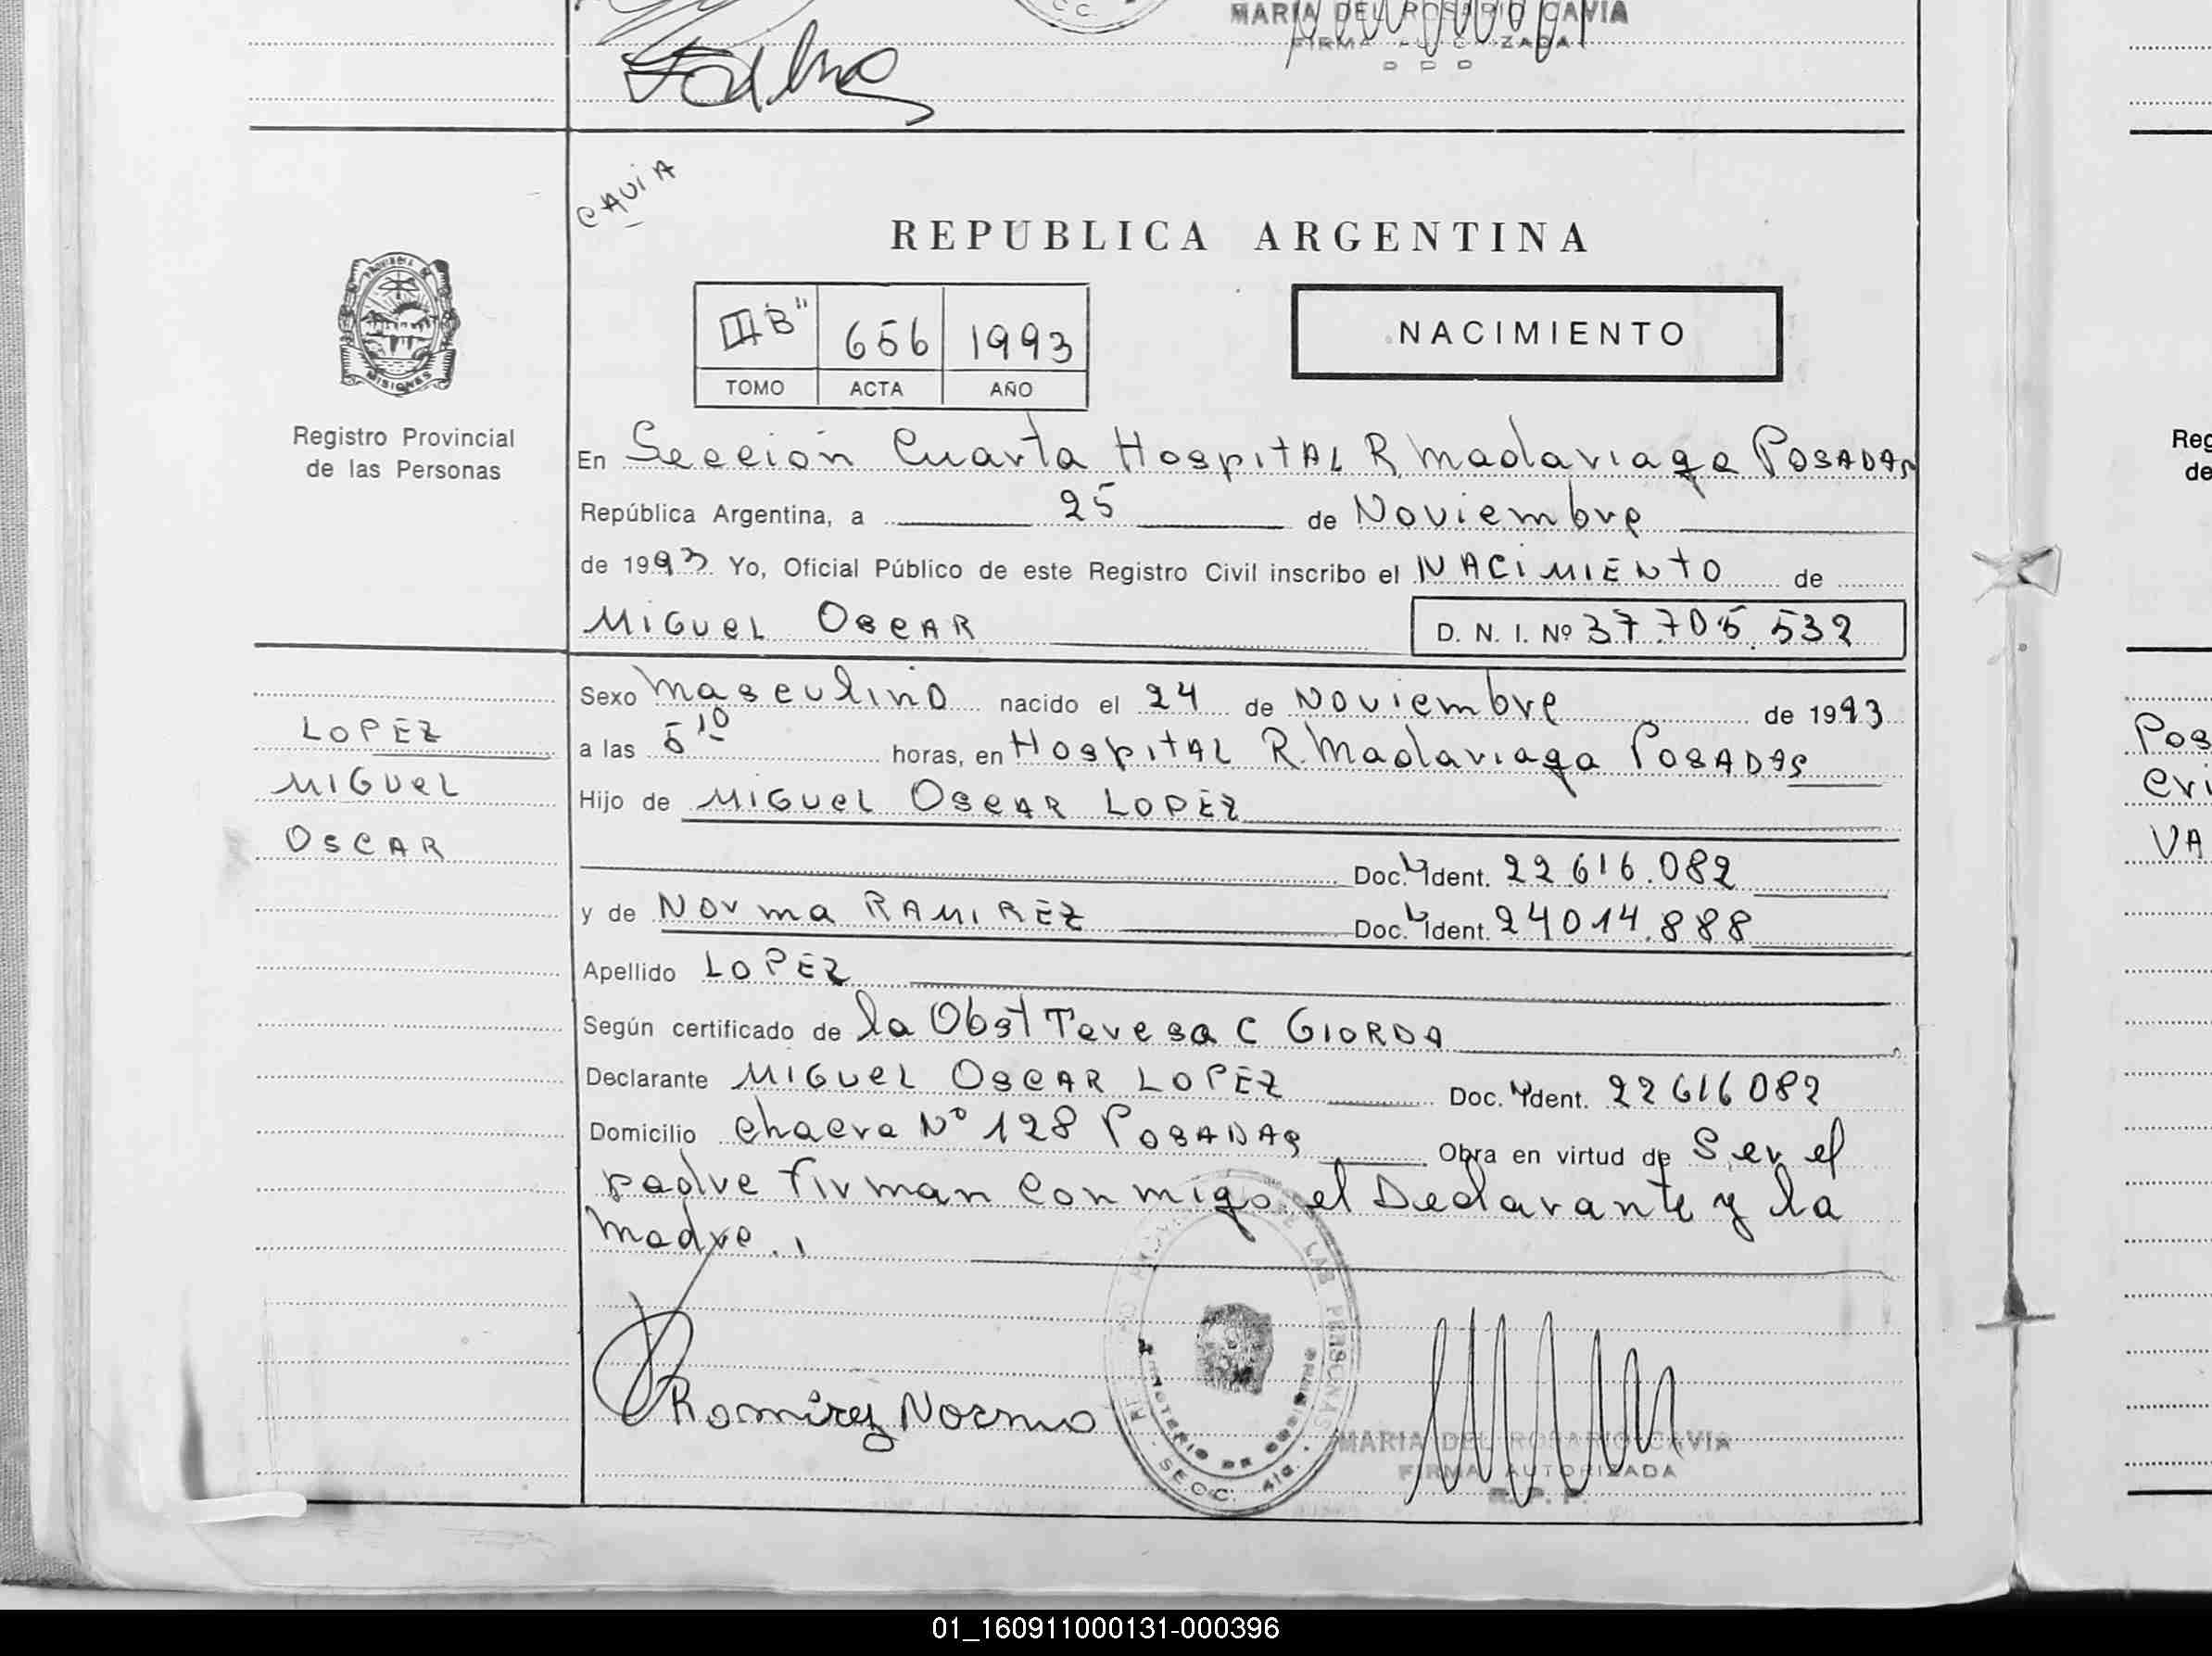 MARIA DEL ROSARIO CAVIA
FIRMA AUTORIZADA
CAVIA
REPUBLICA ARGENTINA
III B"
656
1993
TOMO
ACTA
AÑO
NACIMIENTO
MISIONES
Registro Provincial
de las Personas
En Sección Cuarta Hospital R. Madariaga POSADAS
República Argentina, a 25 de Noviembre
de 1993 Yo, Oficial Público de este Registro Civil inscribo el NACIMIENTO de
MIGUEL OSCAR
D. N. I. Nº 37.705.532
Sexo masculino nacido el 24 de Noviembre de 1993
a las 5 10 horas, en Hospital R. Madariaga POSADAS
Hijo de MIGUEL OSCAR LOPEZ
Doc. Ident. 22.616.082
y de Norma RAMIREZ Doc. Ident. 24014.888
Apellido LOPEZ
Según certificado de la Obst Teresa C GIORDA
Declarante MIGUEL OSCAR LOPEZ Doc. Ident. 22616082
Domicilio chacra Nº 128 POSADAS Obra en virtud de Ser el
padre firman conmigo el Declarante y la
madre.
LOPEZ
MIGUEL
OSCAR
Ramirez Norma
LAS PERSONAS
MINISTERIO DE GOBIERNO
SECC. 4ta.
MARIA DEL ROSARIO CAVIA
FIRMA AUTORIZADA
R. P. P.
Reg
de
Pos
Cri
VA
01_160911000131-000396